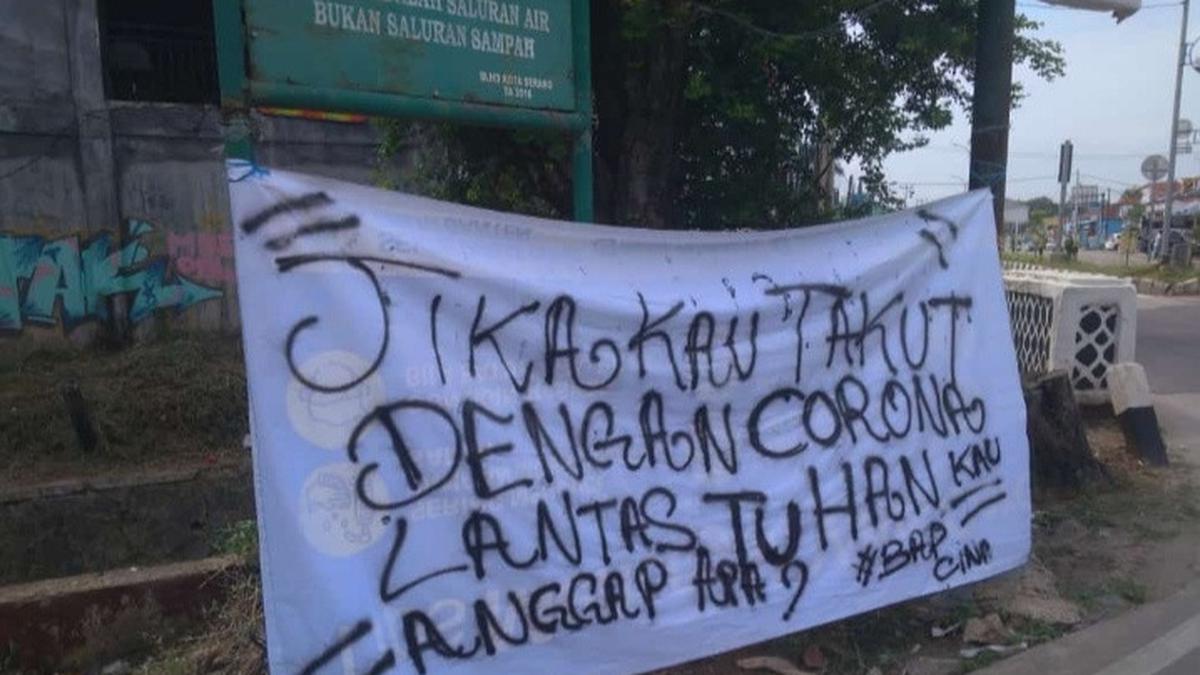 ADALAH SALURAN AIR
BUKAN SALURAN SAMPAH
BLHD KOTA SERANG
TA 2016
TAK
"JIKA KAU TAKUT
DENGAN CORONA
LANTAS TUHAN KAU
ANGGAP APA?
#BAP
CINA